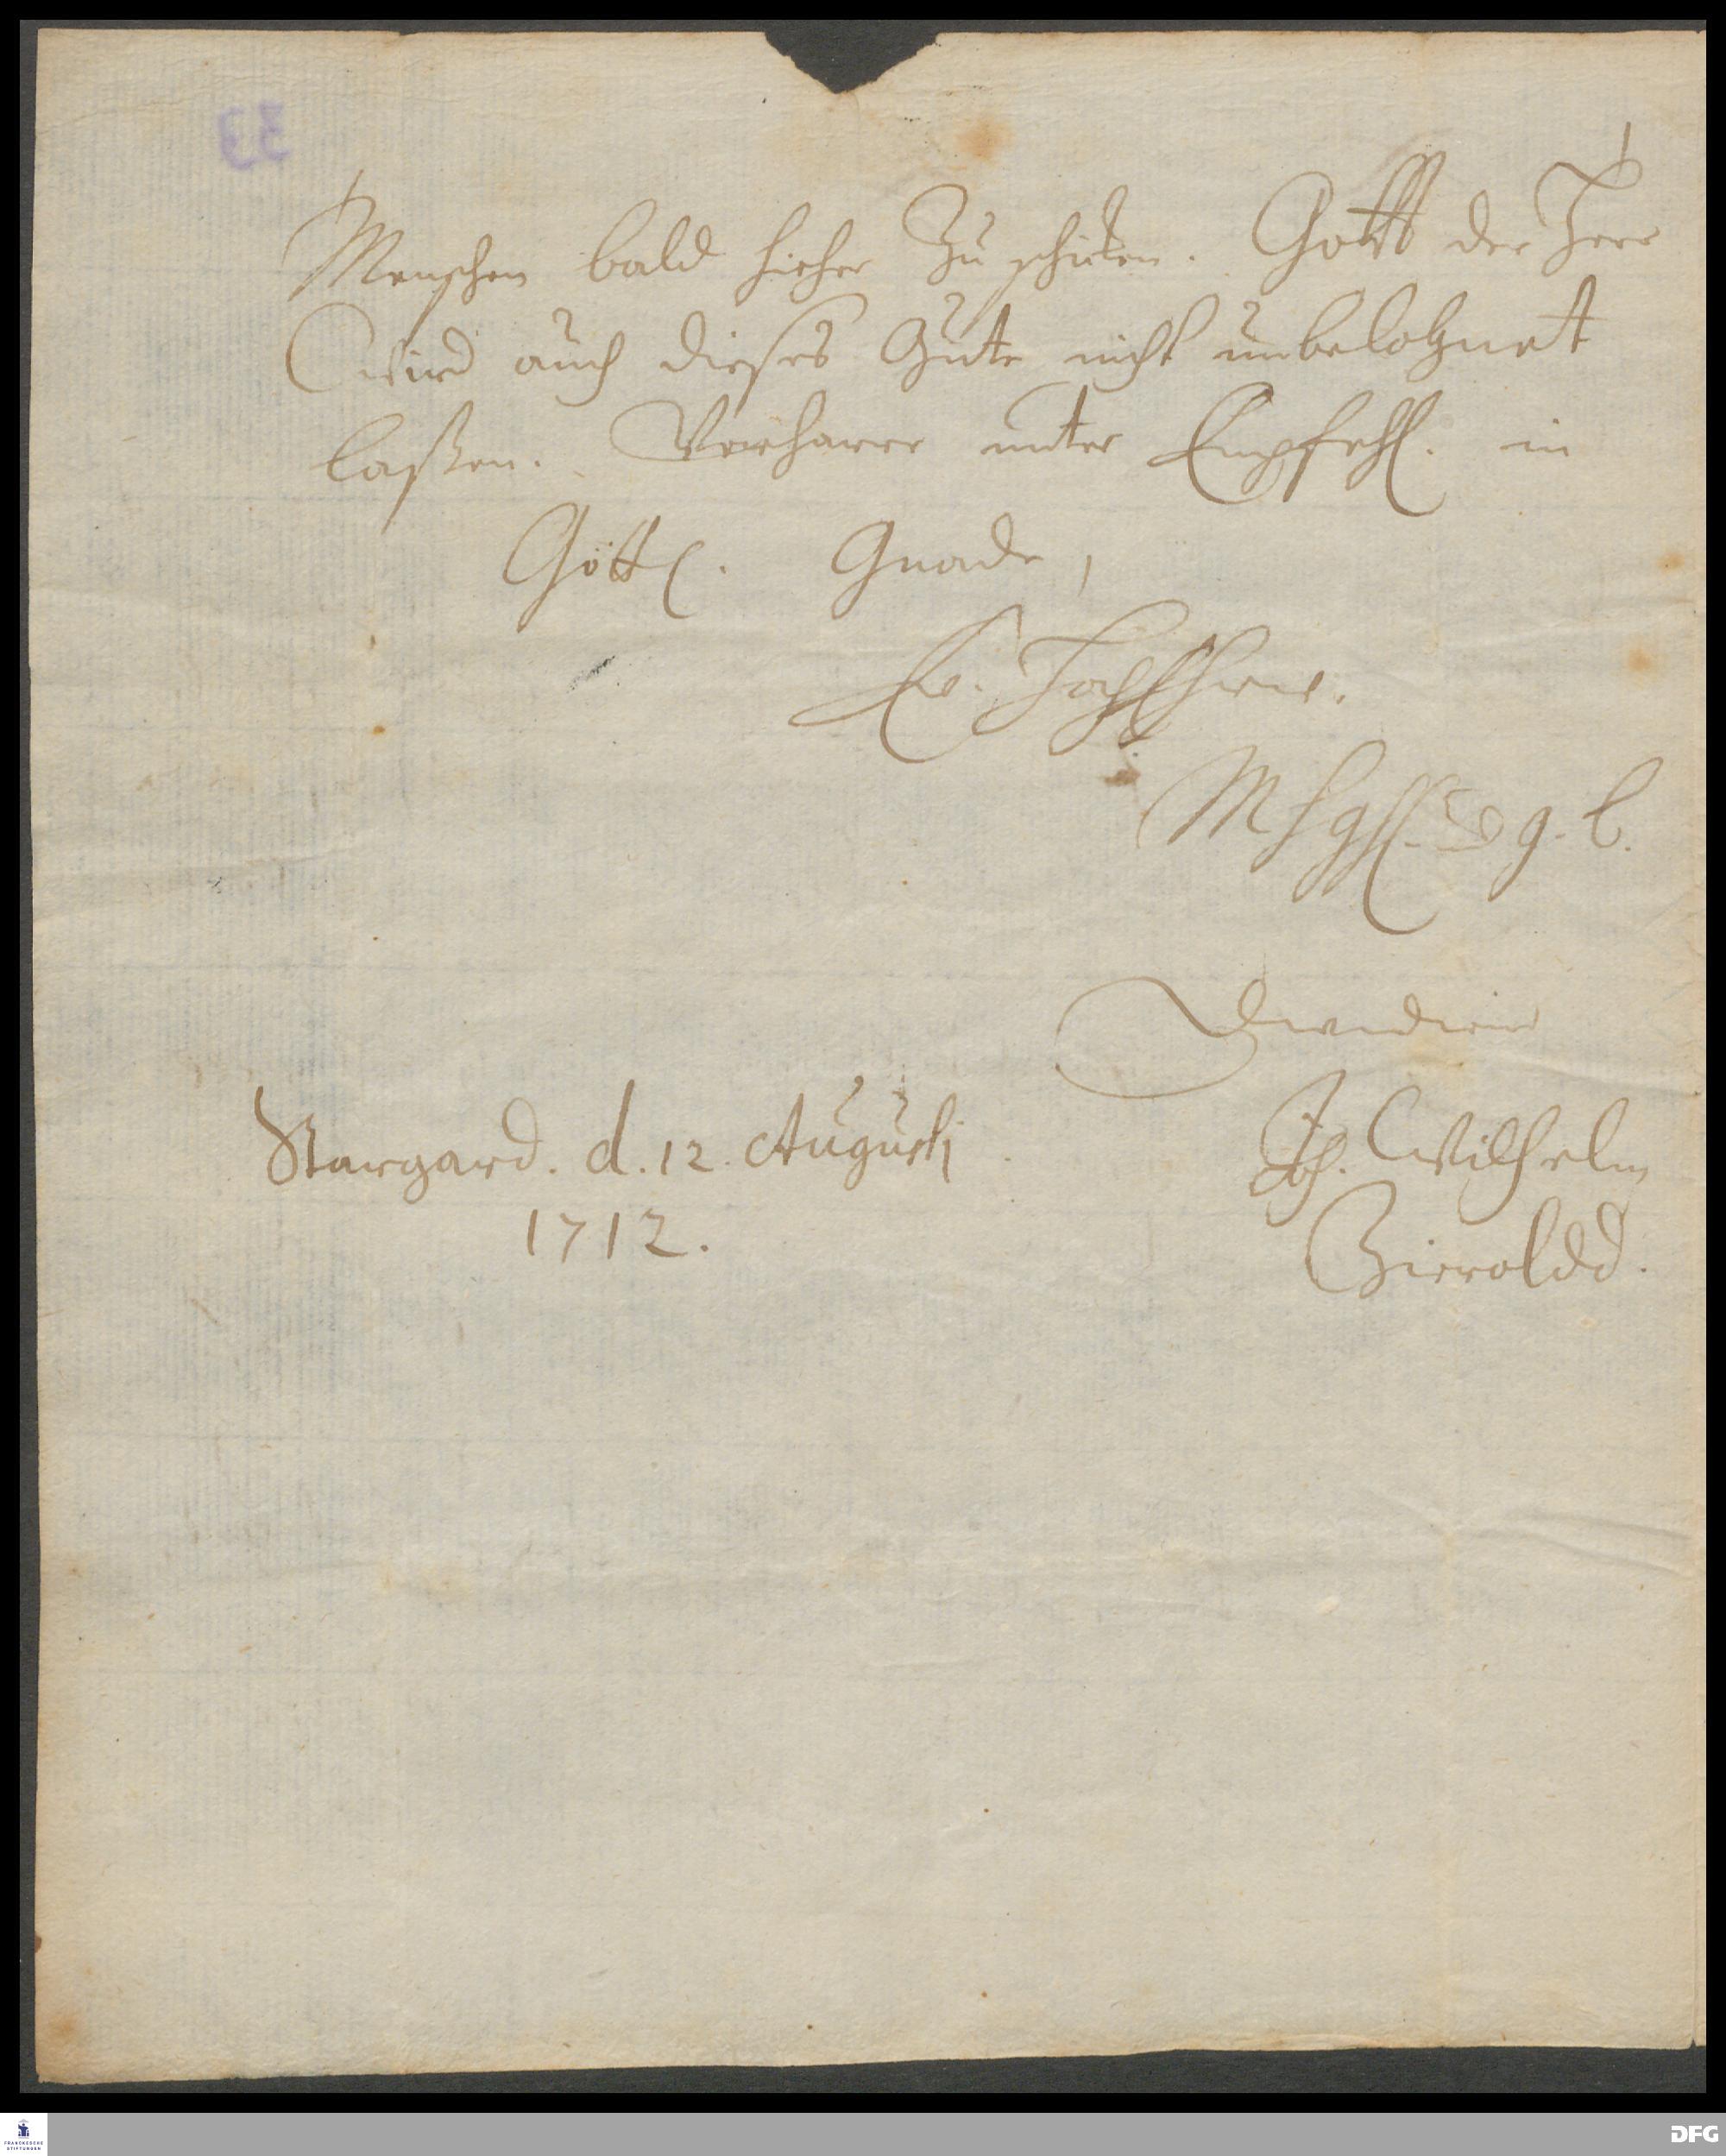 Menschen bald hieher zu schicken. Gott der Herr
wird auch dieses Gute nicht unbelohnet
laßen. Verharre unter Empfehl. in
Göttl. Gnade,
Ew. HochEhrw.
Stargard. d. 12. Augusti
1712.
Joh. Wilhelm
Zieroldd.
33
FRANCKESCHE
STIFTUNGEN
DFG